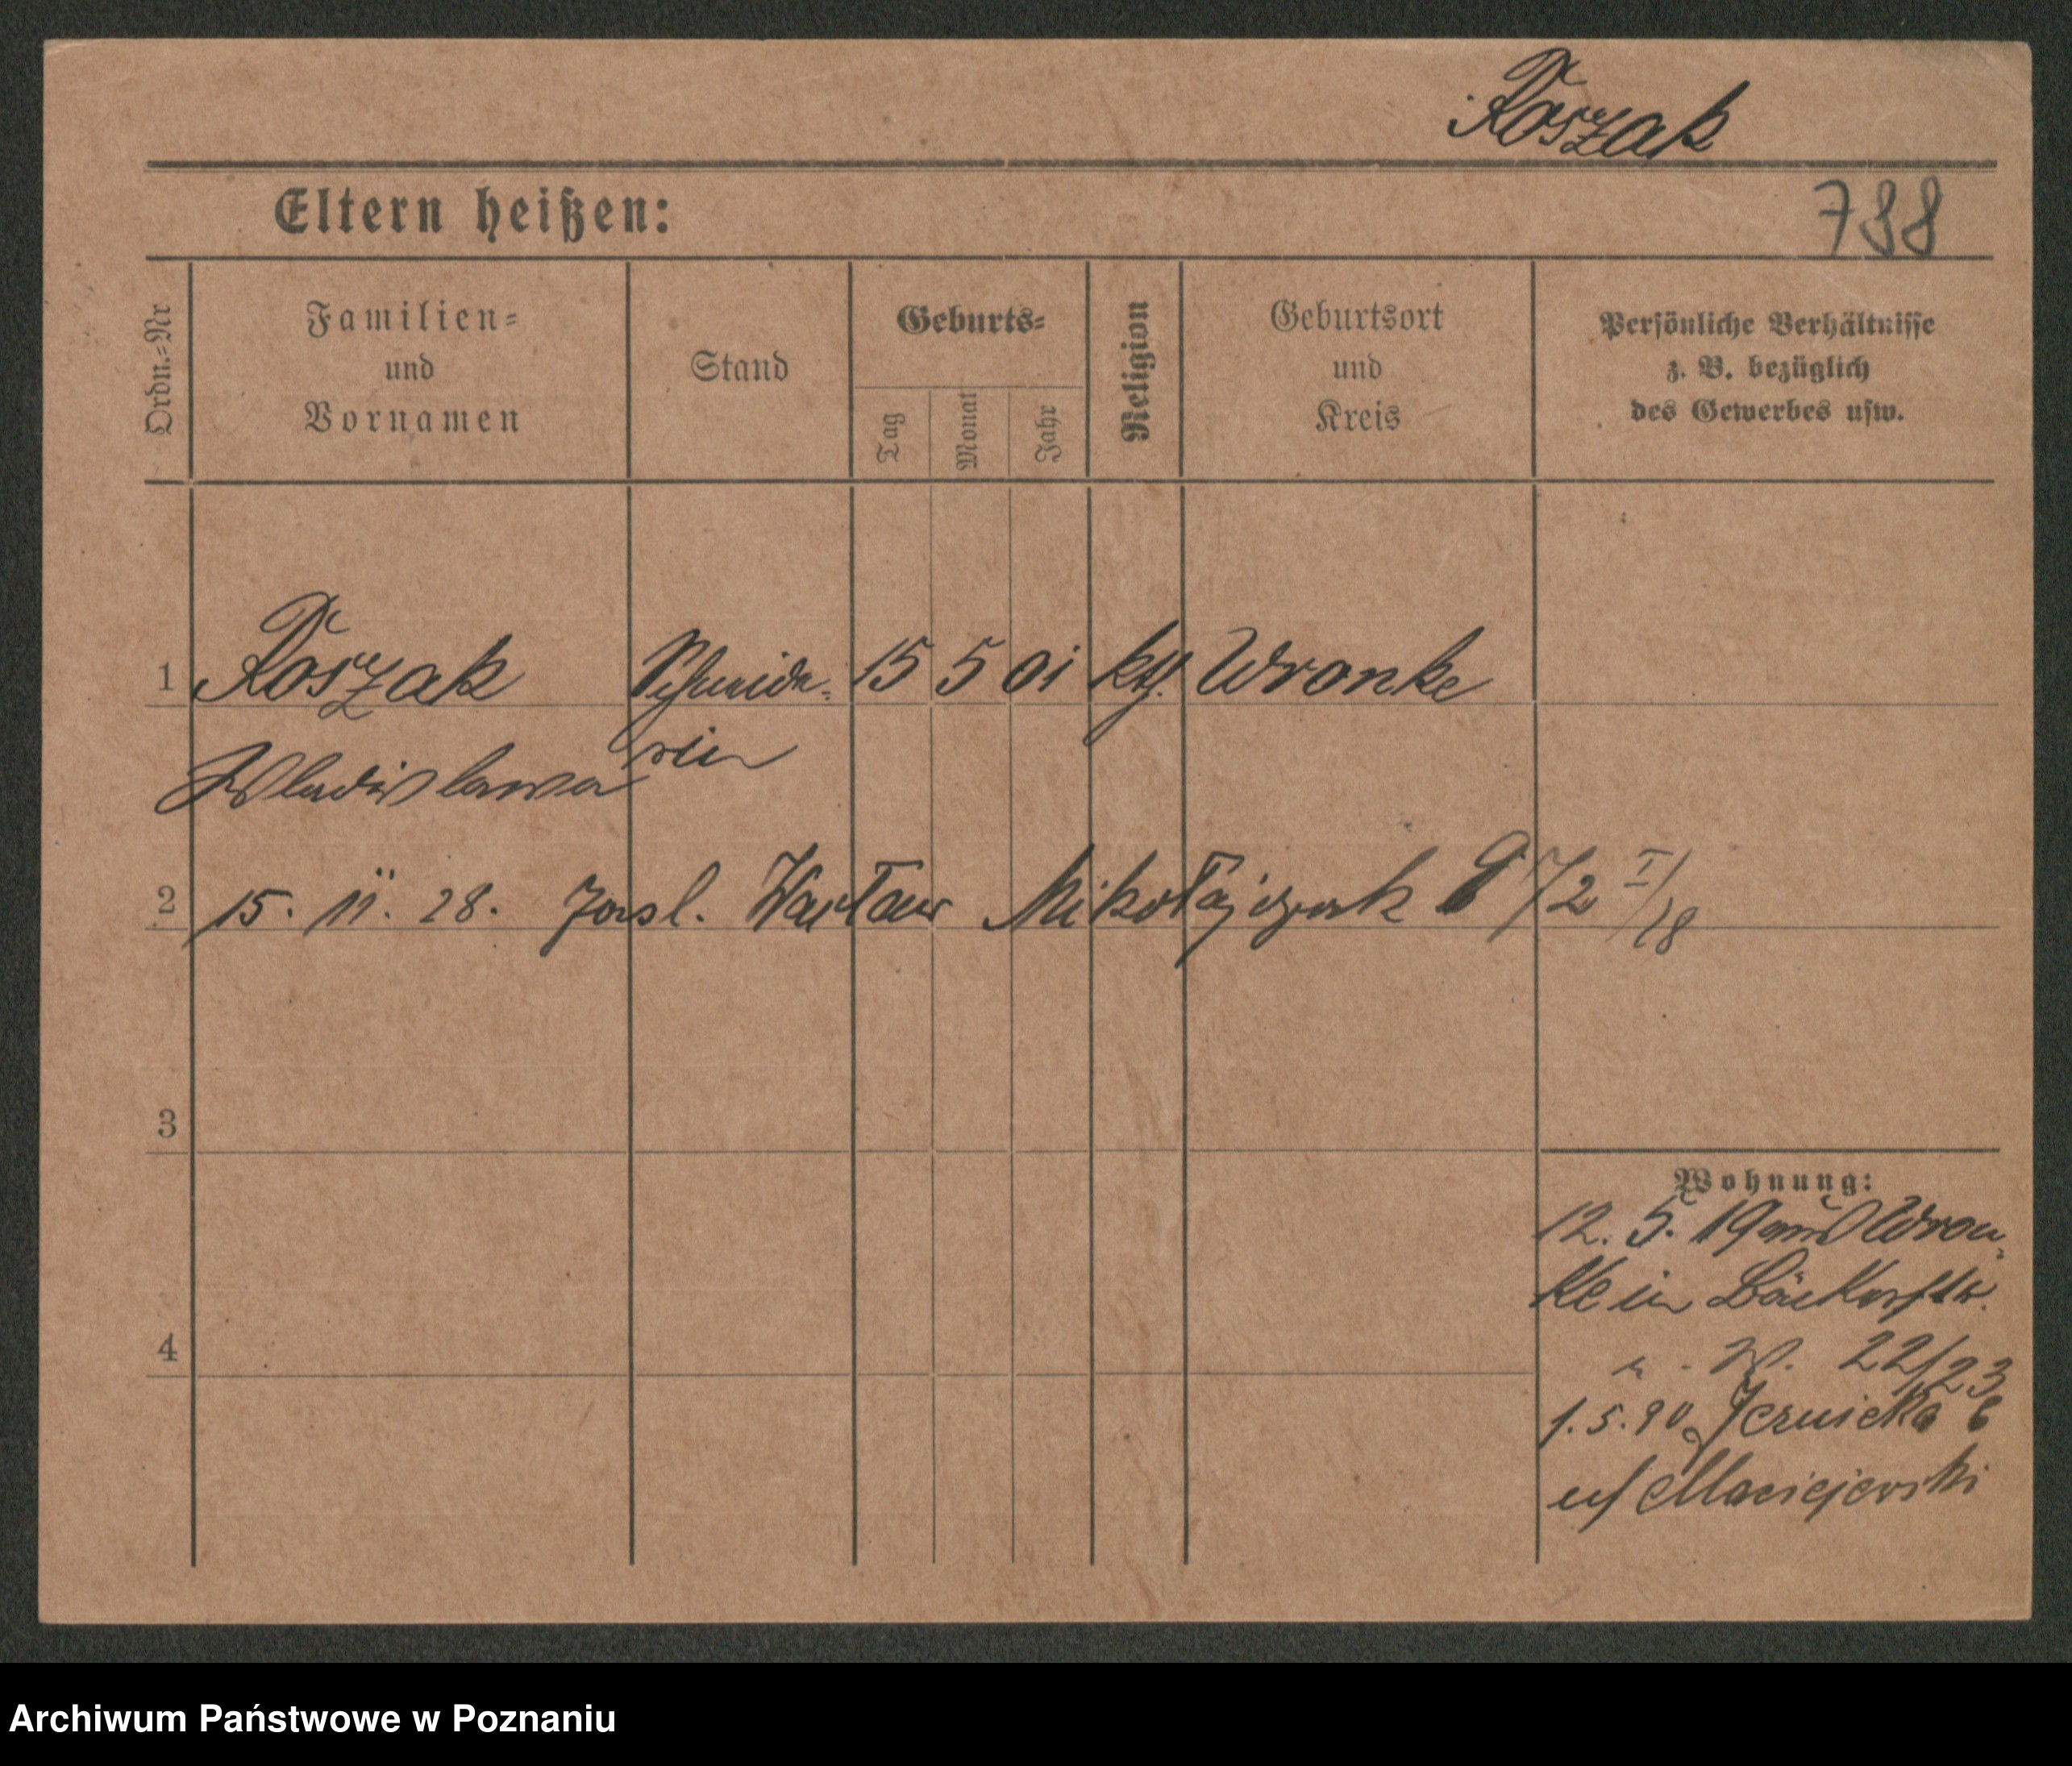 Koszak
Eltern heißen:
788
Ordn.=Nr
Familien=
und
Vornamen
Stand
Geburts=
Tag
Monat
Jahr
Religion
Geburtsort
und
Kreis
Persönliche Verhältnisse
z. B. bezüglich
des Gewerbes usw.
1 Koszak Schneide- 15 5 01 kth. Wronke
Wladislawa rin
2 15. 11. 28. zasl. Wacław Mikołajczak 72 I/18
3
Wohnung:
12. 5. 19 aus Wron-
ke in Bäckerstr.
22/23
4
1.5.90
Maciejewski
Archiwum Państwowe w Poznaniu